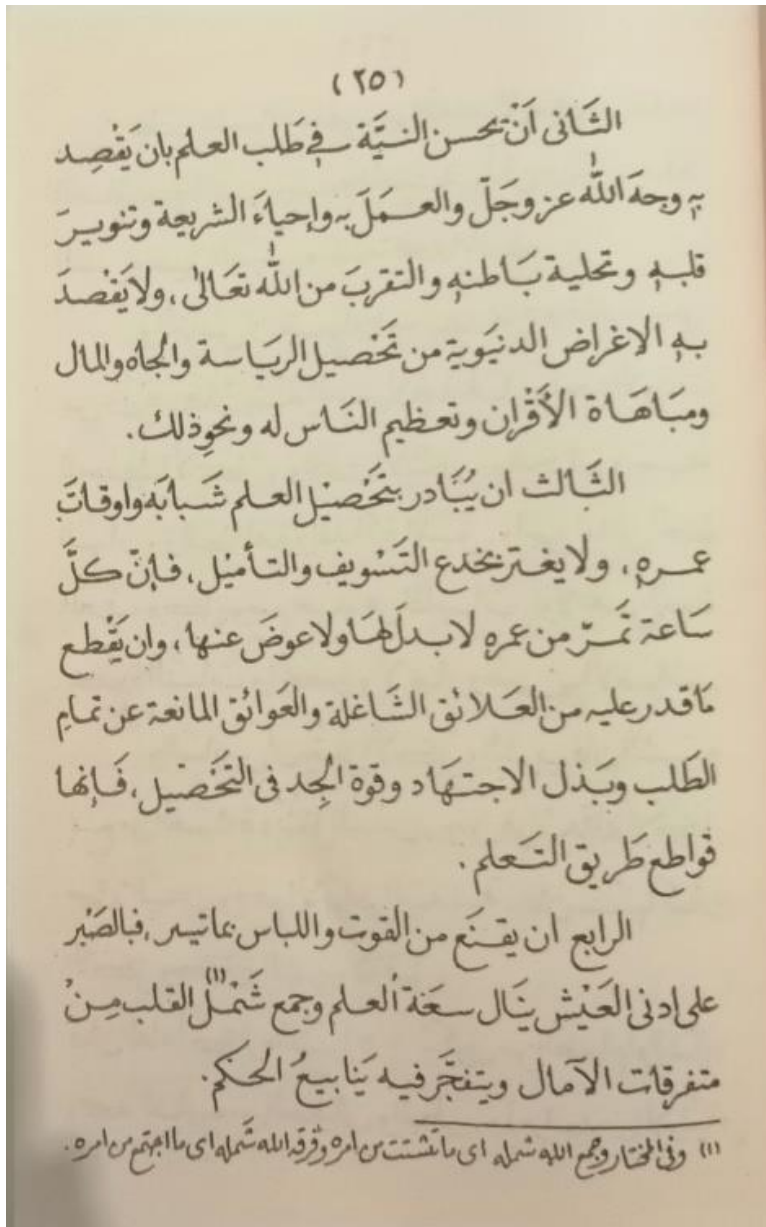 (٢٥)
الثَّانى اَنْ يحسن النيَّة فِے طَلب العلم بان يَقْصِد
بِهٖ وجهَ اللّٰه عز وجَلّ والعـمَلَ بهٖ وإحياءَ الشريعة وتنويرَ
قلبهٖ وتحلية بَاطنهٖ والتقربَ من اللّٰه تعَالٰى، ولا يَقْصدَ
بهٖ الاغراض الدنيَوية من تَحْصيل الريَاسة والجاه والمال
ومبَاهَاة الأَقْران وتعظيم النَاس له ونحوِ ذلك.
الثَالث ان يُبَادر بتَحْصيْل العلم شَبابَه واوقاتَ
عمرهٖ، ولا يغتر بخدع التَسْويف والتأميْل، فإنّ كلَّ
سَاعة تَمرّ من عمرهٖ لا بدلَ لهَا ولا عوضَ عنها، وان يَقْطع
مَا قدر عليه من العَلائق الشَاغلة والعَوائق المانعة عن تمامِ
الطَلب وبَذل الاجتهَاد وقوة الجِد فى التَحْصيل، فَإنها
قواطع طَريق التَعلم.
الرابع ان يقنَع من القوت واللباس بما تيسر، فبالصَبْر
على ادنى العَيْش ينَال سعَة العلم وجمع شَمْلُ(١) القلب مِنْ
متفرقات الآمال ويتفجَّر فيه يَنابيعُ الحكم.
(١) وفى المختار وجمع الله شمله اى ما تشتت من امره وفرق الله شَمله اى ما اجتمع من امره.